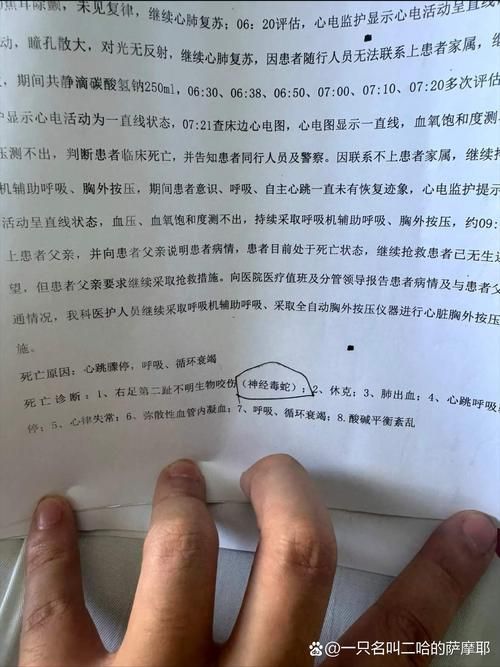 焦耳除颤，未见复律，继续心肺复苏；06：20评估，心电监护显示心电活动呈一直
，瞳孔散大，对光无反射，继续心肺复苏，因患者随行人员无法联系上患者家属，继续
，期间共静滴碳酸氢钠250ml，06:30、06:38、06:50、07:00、07:10、07:20多次评估
护显示心电活动为一直线状态，07:21查床边心电图，心电图显示一直线，血氧饱和度测
压测不出，判断患者临床死亡，并告知患者同行人员及警察。因联系不上患者家属，继续
机辅助呼吸、胸外按压，期间患者意识、呼吸、自主心跳一直未有恢复迹象，心电监护提示
活动呈直线状态，血压、血氧饱和度测不出，持续采取呼吸机辅助呼吸、胸外按压，约09:
上患者父亲，并向患者父亲说明患者病情，患者目前处于死亡状态，继续抢救患者已无生还
望，但患者父亲要求继续采取抢救措施。向医院医疗值班及分管领导报告患者病情及与患者父
通情况，我科医护人员继续采取呼吸机辅助呼吸、采取全自动胸外按压仪器进行心脏胸外按压
施。
死亡原因：心跳骤停，呼吸、循环衰竭
死亡诊断：1、右足第二趾不明生物咬伤（神经毒蛇）；2、休克；3、肺出血；4、心跳呼吸
停；5、心律失常；6、弥散性血管内凝血；7、呼吸、循环衰竭；8.酸碱平衡紊乱
@一只名叫二哈的萨摩耶